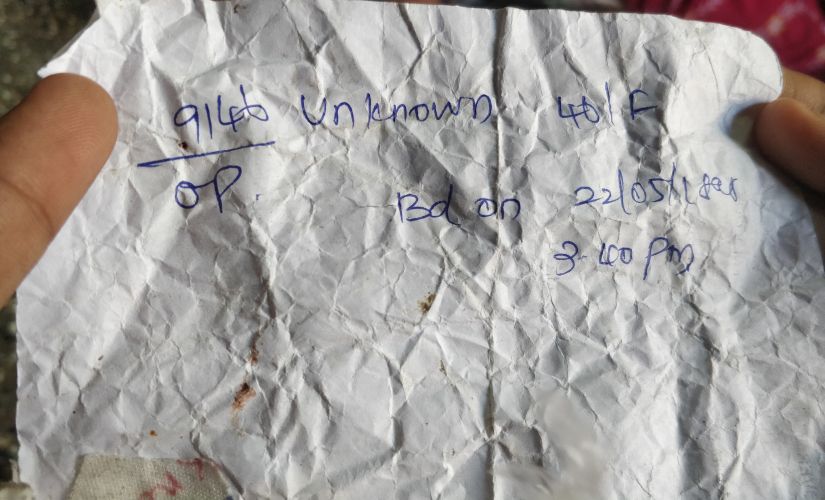 9146 Unknown 40/F
OP.
Bd on 22/05/
3.40 pm